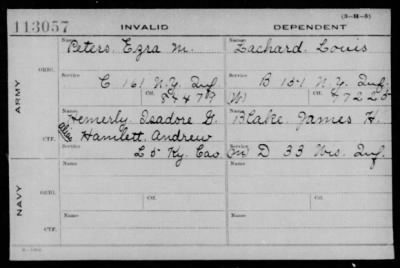 (3-M-5)
113057 INVALID DEPENDENT
Name Name
Peters, Ezra M. Zachard, Louis
ORIG.
Service Service
C 161 N.Y. Inf B 151 N.Y. Inf
Ctf. Ctf.
ARMY
Name Name
Hemerly, Isadore G. Blake, James H.
alias Hamlett, Andrew
CTF.
Service Service
L 5 Ky. Cav. (M) D 33 Wis. Inf.
Name Name
ORIG.
Service Service
NAVY
Name Name
CTF.
Service Service